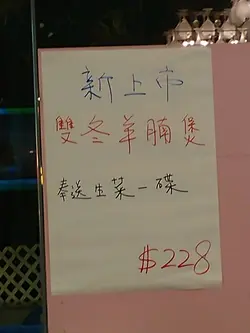 新上市
雙冬羊腩煲
奉送生菜一碟
$228